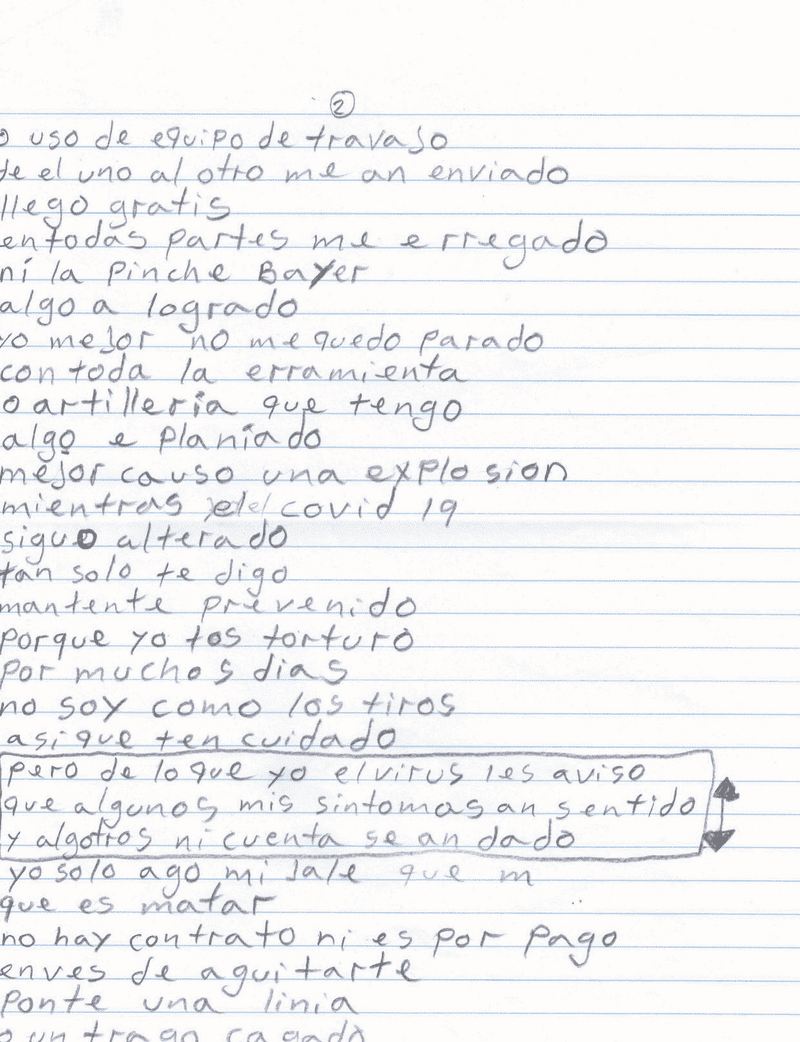 2
o uso de equipo de travaJo
de el uno al otro me an enviado
llego gratis
en todas partes me e rregado
ni la Pinche Bayer
algo a logrado
yo meJor no me quedo parado
con toda la erramienta
o artilleria que tengo
algo e planiado
meJor causo una explosion
mientras el covid 19
siguo alterado
tan solo te digo
mantente prevenido
porque yo tos torturo
por muchos dias
no soy como los tiros
asi que ten cuidado
pero de lo que yo el virus les aviso
que algunos mis sintomas an sentido
y algotros ni cuenta se an dado
yo solo ago mi Jale que m
que es matar
no hay contrato ni es por pago
enves de aguitarte
Ponte una linia
o un trago cagado